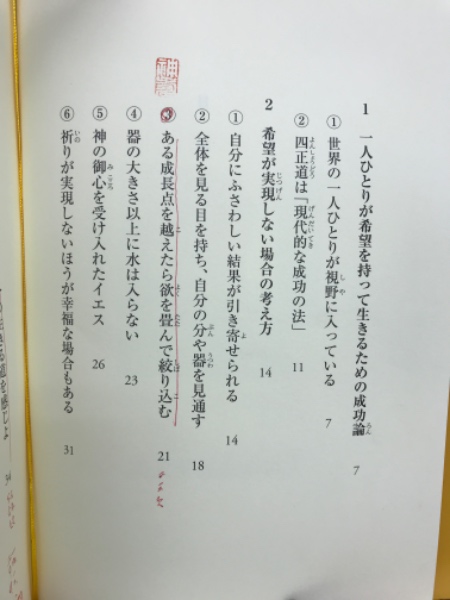 1 一人ひとりが希望を持って生きるための成功論 7
① 世界の一人ひとりが視野に入っている 7
② 四正道は「現代的な成功の法」 11
2 希望が実現しない場合の考え方 14
① 自分にふさわしい結果が引き寄せられる 14
② 全体を見る目を持ち、自分の分や器を見通す 18
③ ある成長点を越えたら欲を畳んで絞り込む 21
④ 器の大きさ以上に水は入らない 23
⑤ 神の御心を受け入れたイエス 26
⑥ 祈りが実現しないほうが幸福な場合もある 31